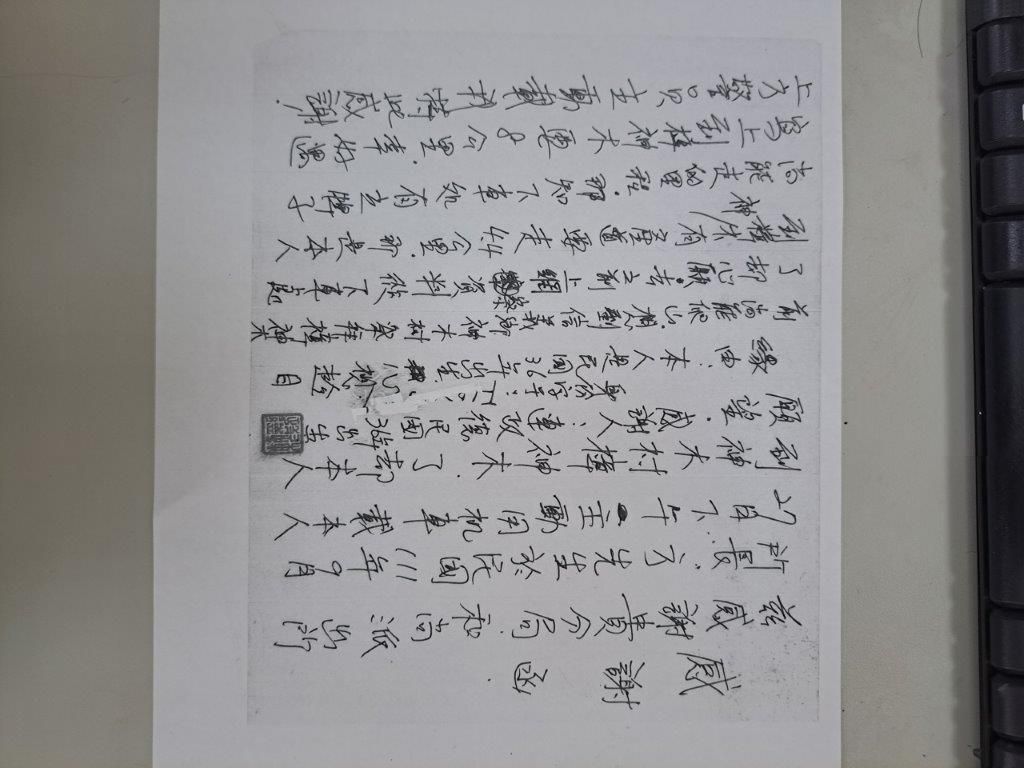 感謝函.
茲感謝貴分局.和尚派出所
所長.方先生於民國111年9月
27日下午主動用机車載本人
到神木村樟神木.了却本人
願望.感謝人:連政德民國36年出生
身份字号:
緣由:本人是民國36年出生心想趁目
前尚能爬山.想到信義鄉神木村參拜樟神木
了却心願.去之前上網察資料從下車處
到樟神木有產道要走4.4公里.那是本人
尚能走的里程.那知下車処有立牌子
寫上到樟神木要8公里.幸好遇
上方警員主動載我特此感謝!